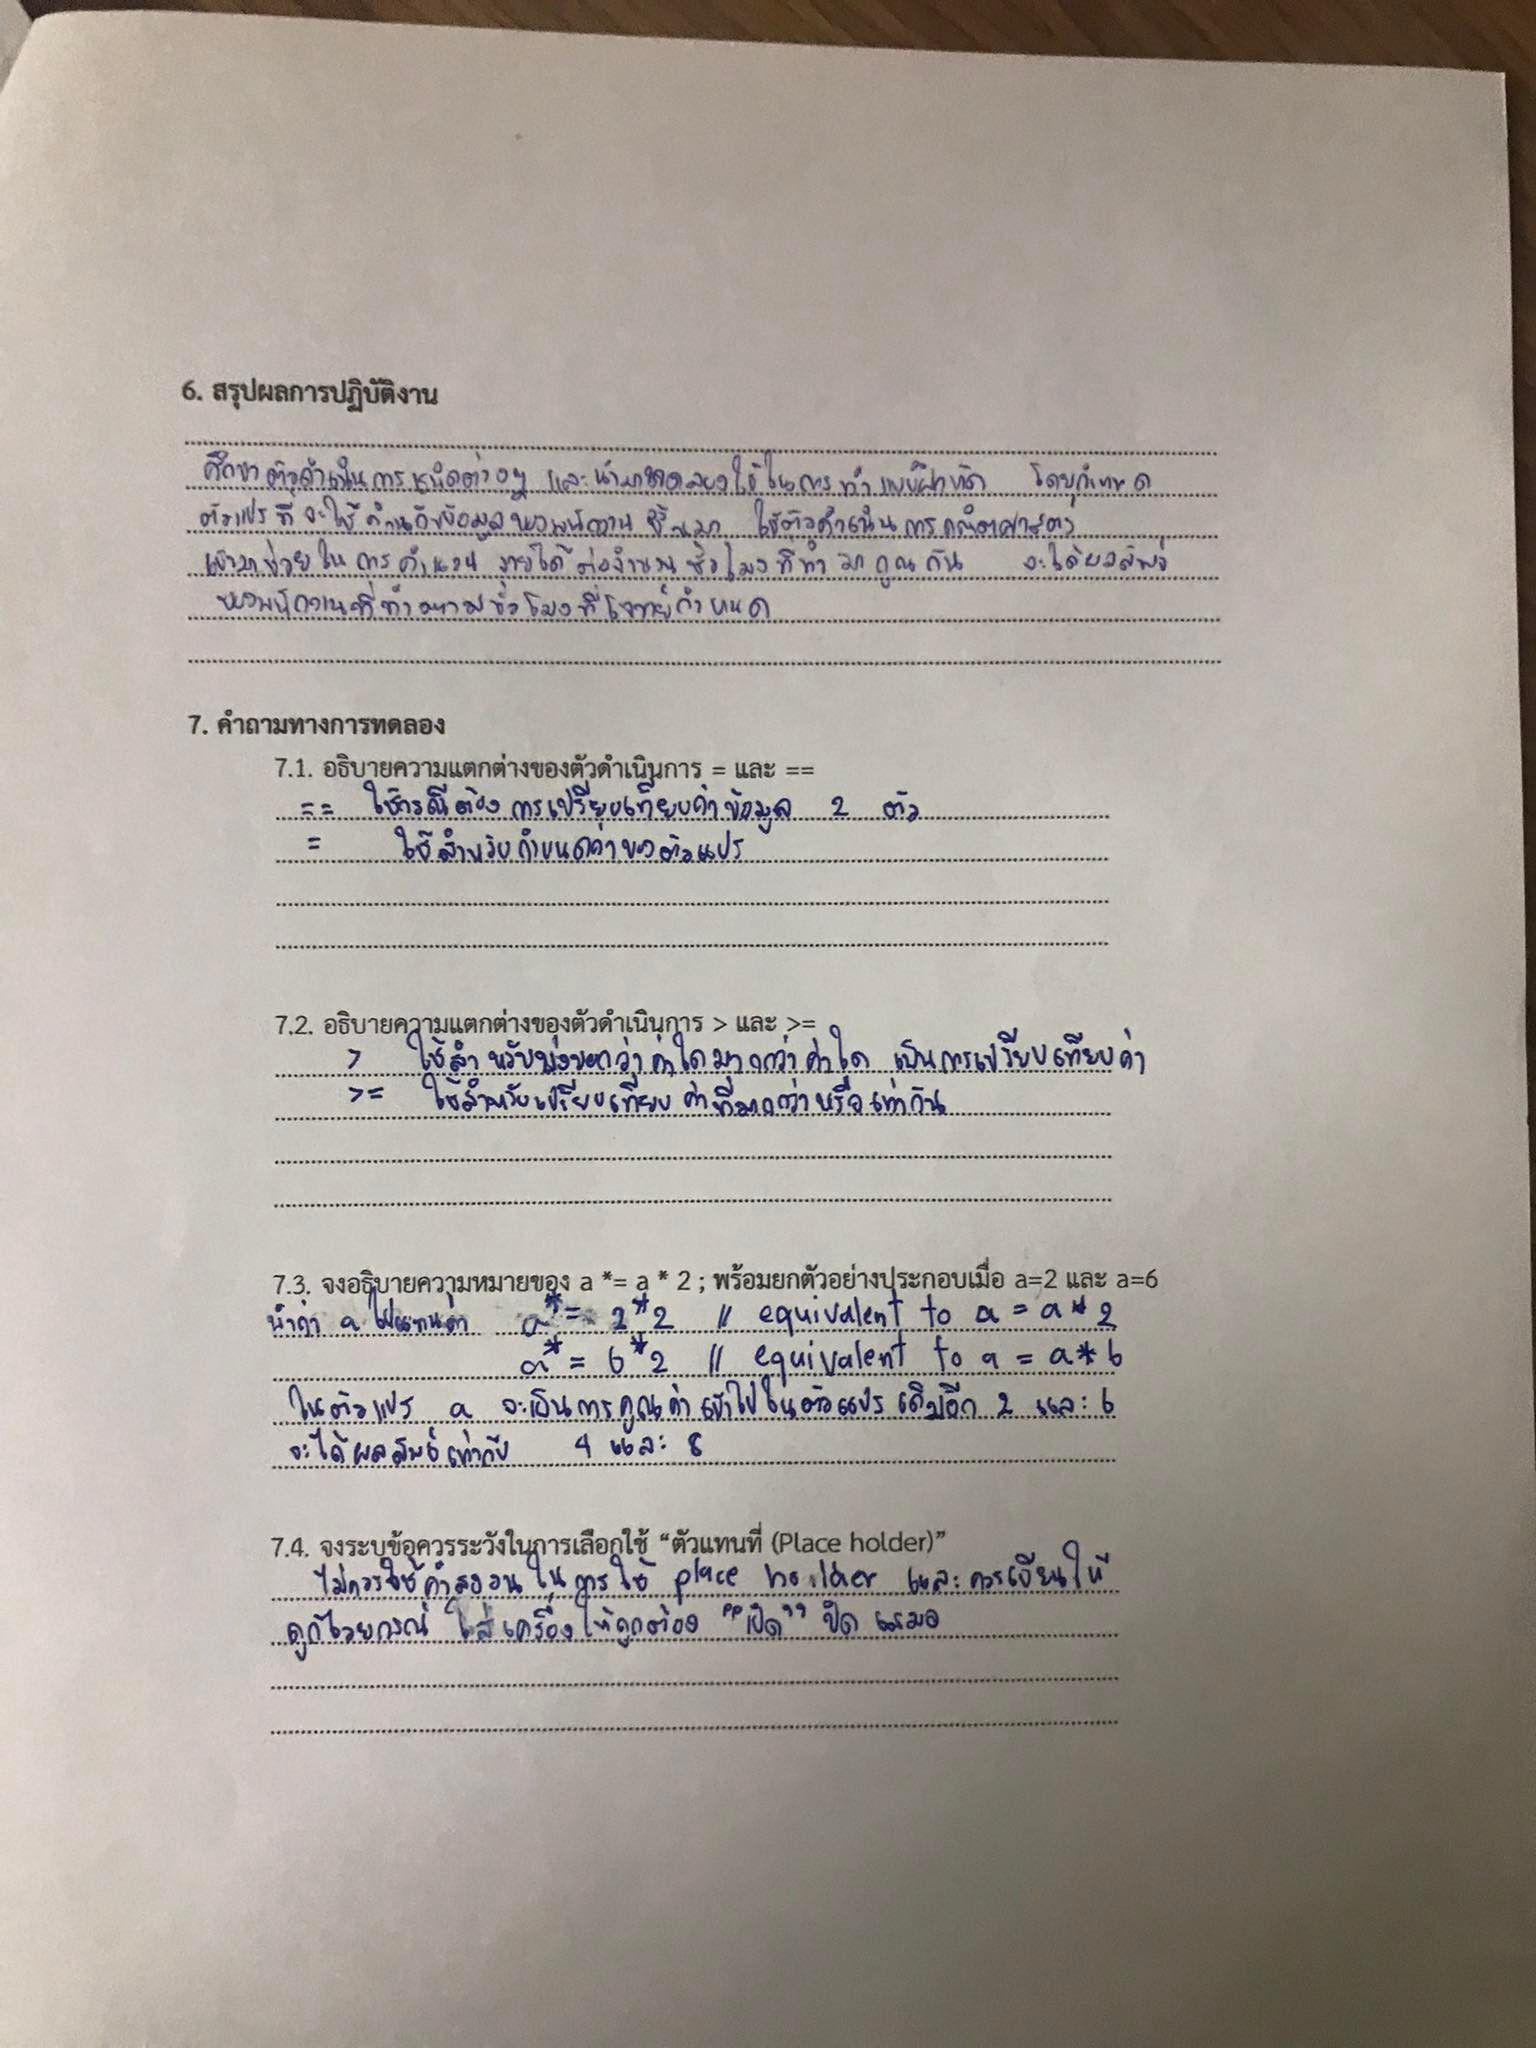 6. สรุปผลการปฏิบัติงาน
ศึกษาตัวดำเนินการชนิดต่างๆ และนำมาทดลองใช้ในการทำแบบฝึกหัด โดยกำหนด
ตัวแปรที่จะใช้ เก็บข้อมูลของพนักงาน ขึ้นมา ใช้ตัวดำเนินการคณิตศาสตร์
เข้ามาช่วยในการคำนวน รายได้ต่อจำนวนชั่วโมงที่ทำ มาคูณกัน จะได้ผลลัพธ์
ของพนักงานที่ทำตามชั่วโมงที่โจทย์กำหนด
7. คำถามทางการทดลอง
7.1. อธิบายความแตกต่างของตัวดำเนินการ = และ ==
== ใช้กรณีต้องการเปรียบเทียบค่าข้อมูล 2 ตัว
= ใช้สำหรับกำหนดค่าของตัวแปร
7.2. อธิบายความแตกต่างของตัวดำเนินการ > และ >=
> ใช้สำหรับบ่งบอกว่าค่าใดมากกว่าค่าใด เป็นการเปรียบเทียบค่า
>= ใช้สำหรับเปรียบเทียบ ค่าที่มากกว่าหรือเท่ากัน
7.3. จงอธิบายความหมายของ a *= a * 2 ; พร้อมยกตัวอย่างประกอบเมื่อ a=2 และ a=6
นำค่า a ไปแทนค่า a*= 2*2 // equivalent to a = a*2
a*= 6*2 // equivalent to a = a*6
ในตัวแปร a จะเป็นการคูณค่าเข้าไปในตัวแปรเดิมอีก 2 และ 6
จะได้ผลลัพธ์เท่ากับ 4 และ 8
7.4. จงระบุข้อควรระวังในการเลือกใช้ “ตัวแทนที่ (Place holder)”
ไม่ควรใช้คำสงวนในการใช้ place holder และควรเขียนให้
ถูกไวยกรณ์ ใส่เครื่องให้ถูกต้อง "เปิด" ปิด เสมอ